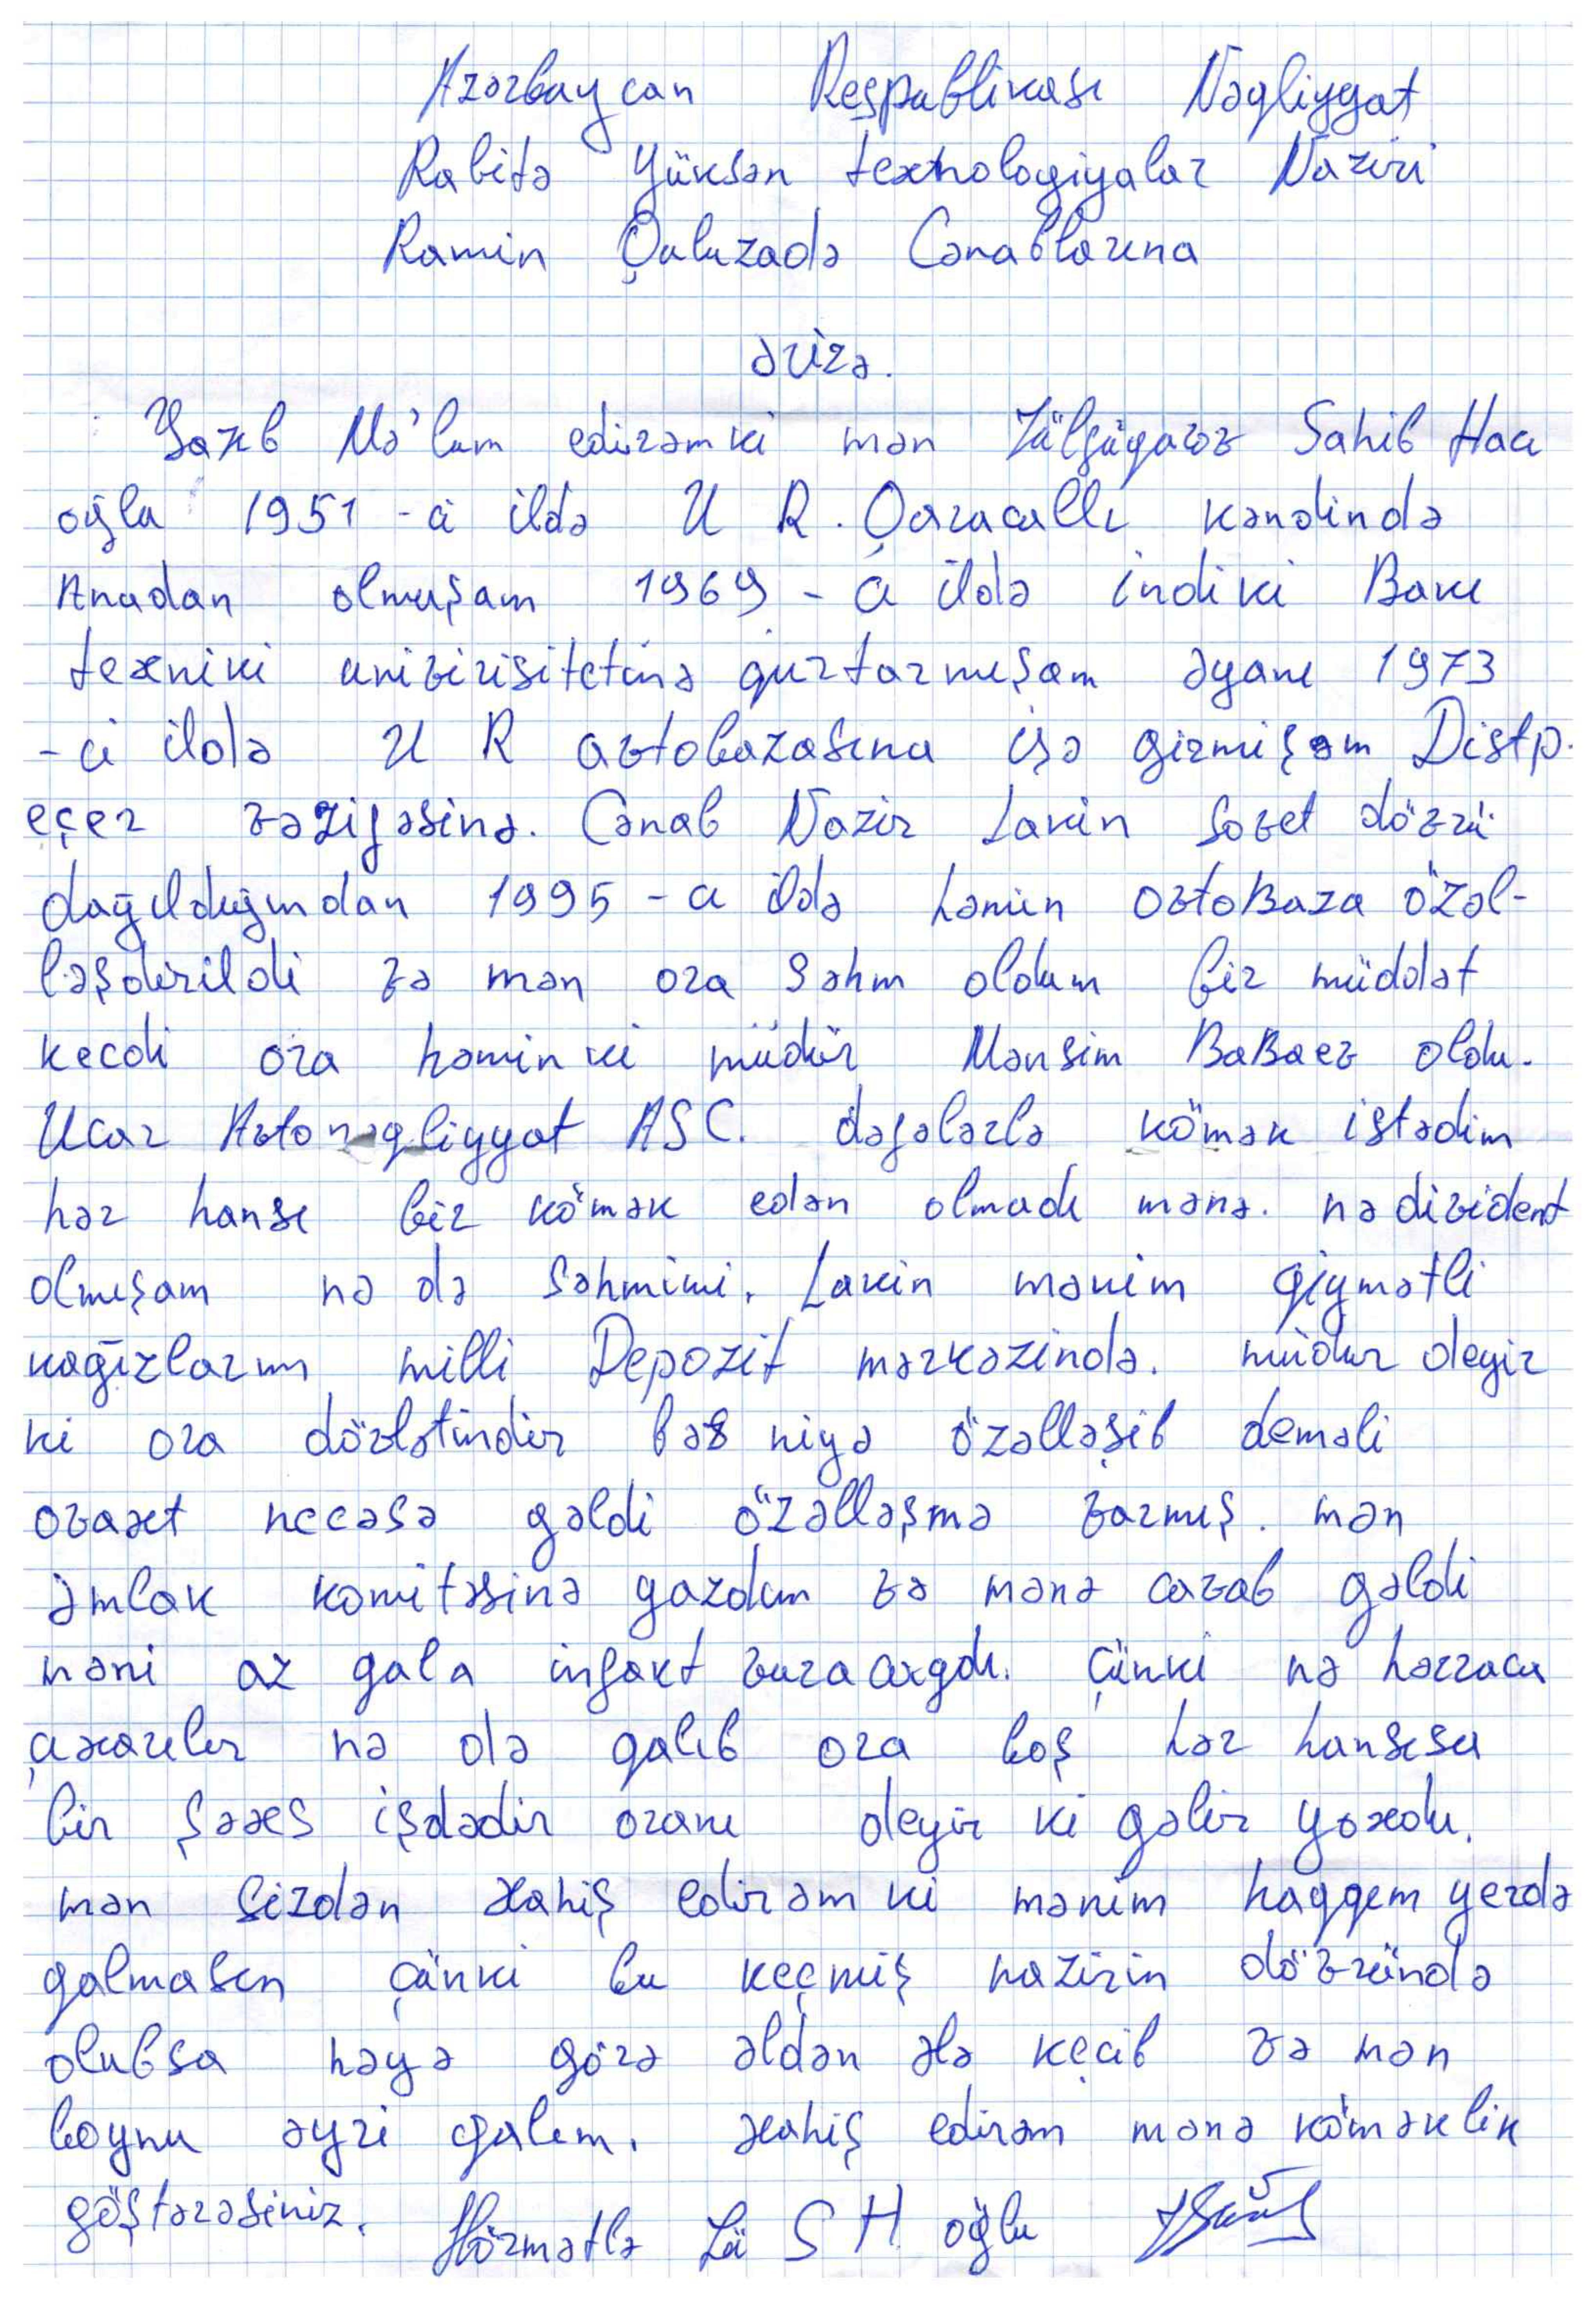 Azərbaycan Respublikası Nəqliyyat
Rabitə Yüksən texnologiyalar Naziri
Ramin Quluzadə Cənablarına
ərizə.
Yazıb Mə'lum edirəmki mən Zülfüqarov Sahib Hacı
oğlu 1951-ci ildə U R. Qaracallı kəndində
Anadan olmuşam 1969-cı ildə indiki Bakı
texniki univirisitetinə qurtarmışam əyanı 1973
-ci ildə U R avtobazasına işə girmişəm Distp.
eçer vəzifəsinə. Cənab Nazir Lakin Sovet dövrü
dağıldığından 1995-ci ildə həmin avtobaza özəl-
ləşdirildi və mən ora səhm oldum bir müddət
kecdi ora həminki müdür Mənsim Babaev oldu.
Ucar Avtonəqliyyat ASC. dəfələrlə kömək istədim
hər hansı bir kömək edən olmadı mənə. nə divident
olmışam nə də səhmimi. Lakin mənim qiymətli
kağızlarım milli Depozit mərkəzində. müdur deyir
ki ora dövlətindir bəs niyə özəlləşib deməli
ovaxt necəsə gəldi özəlləşmə varmış. mən
Əmlak komitəsinə yazdım və mənə cavab gəldi
məni az qala infakt vuracaxydı. Çünki nə hərracı
çıxarılır nə də qalıb ora boş hər hansısa
bir şəxs işdədir oranı deyir ki gəlir yoxdu.
mən sizdən xahiş edirəm ki mənim haqqım yerdə
qalmasın çünki bu keçmiş nazirin dövründə
olubsa nəyə görə əldən ələ keçib və mən
boynu əyri qalım. xahiş edirəm mənə köməklik
göstərəsiniz. Hörmətlə Zü S H oğlu